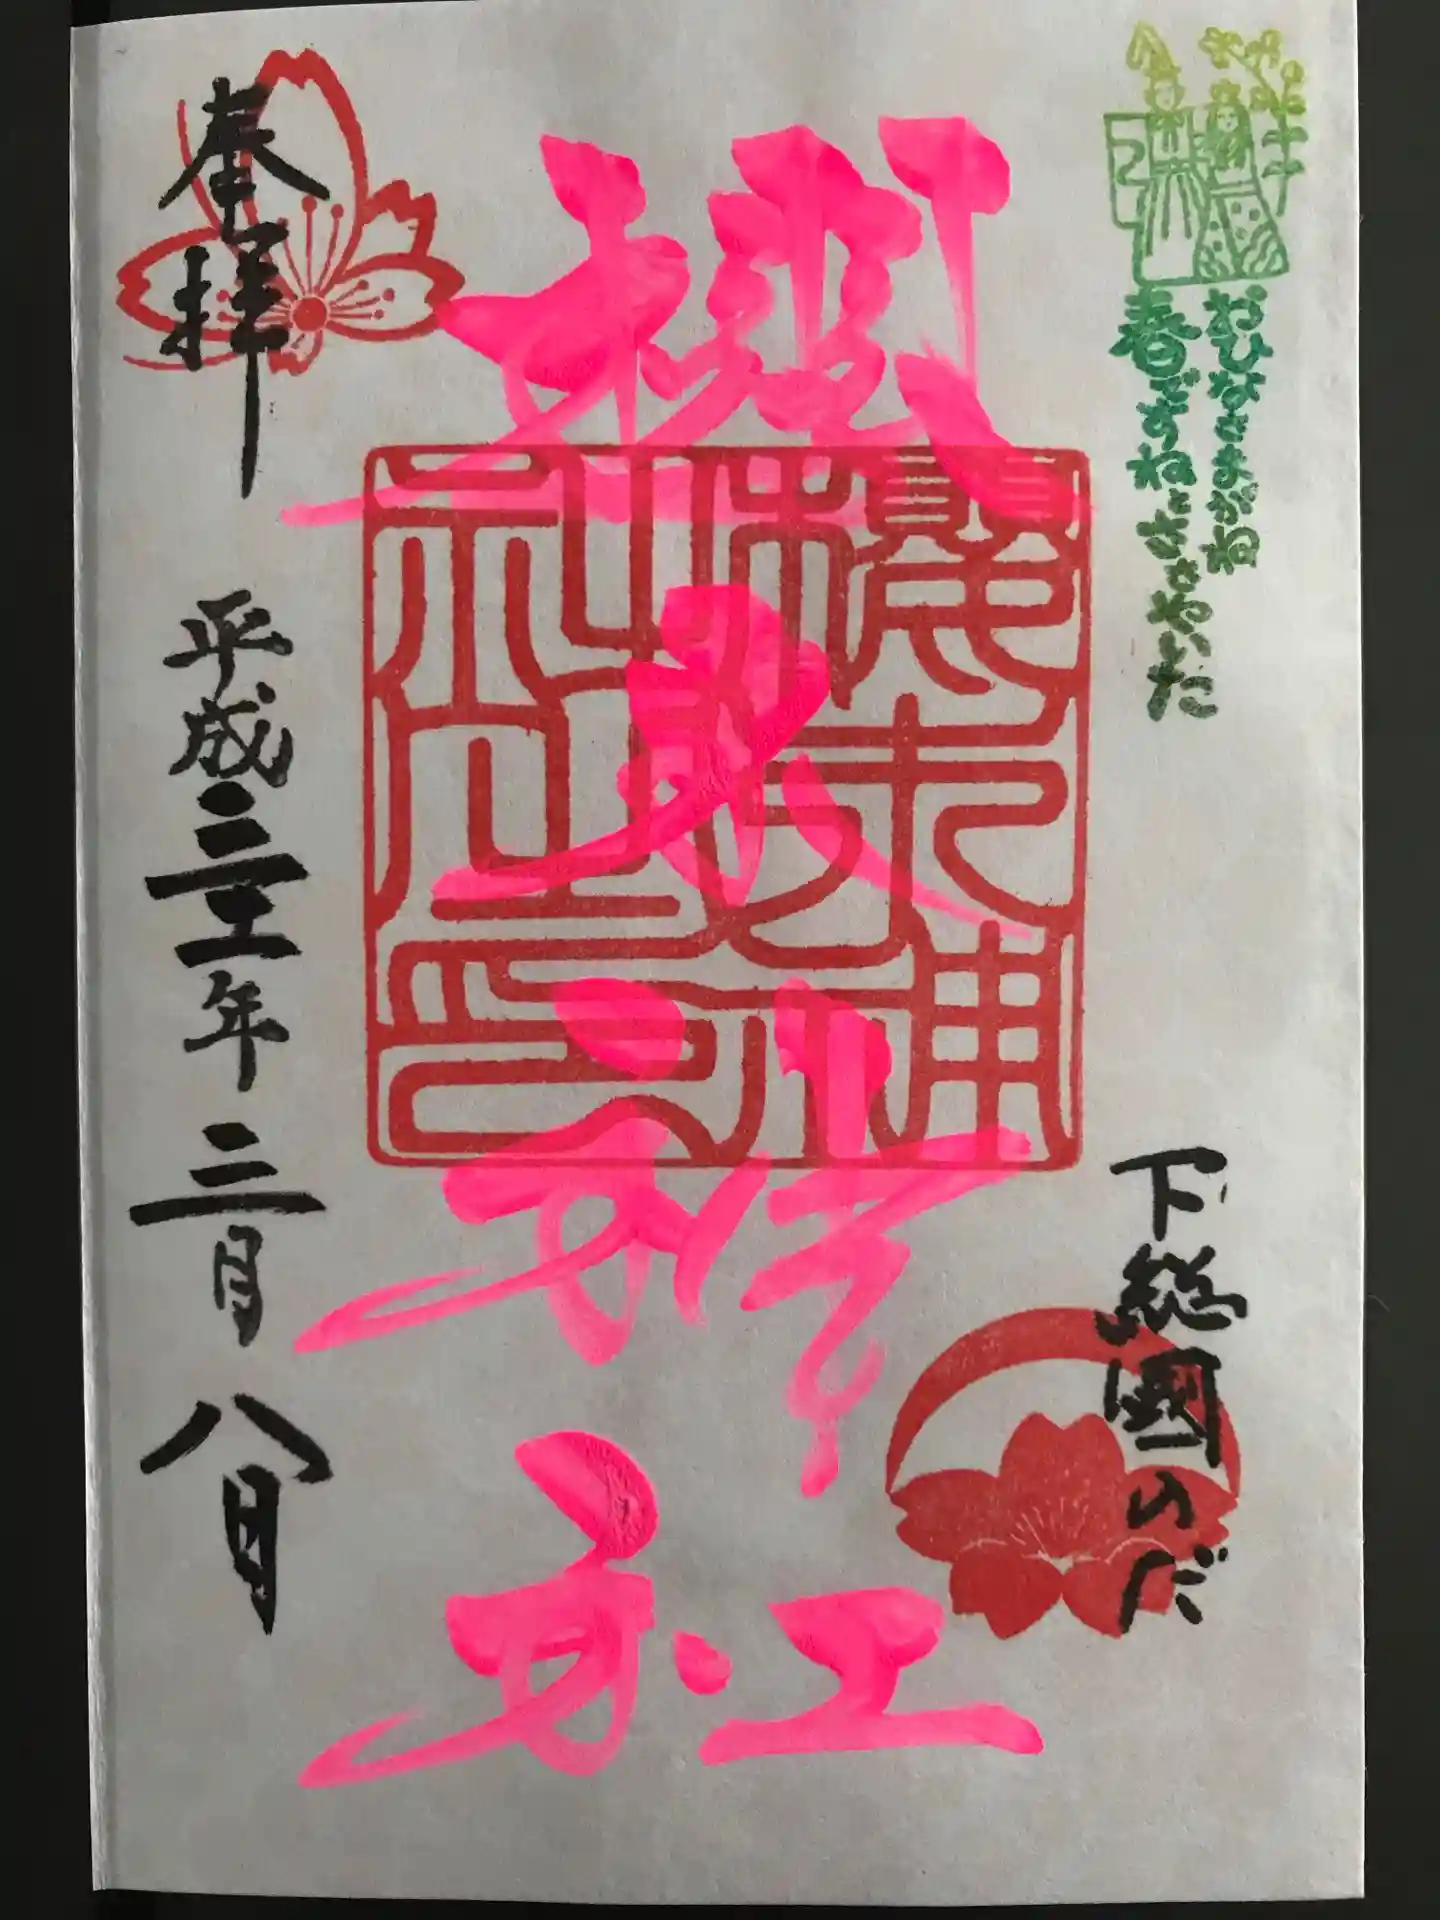 おひなさまがね
春ですねとささやいた
下総國のだ
櫻木神社
櫻木神社之印
奉拝
平成三十一年三月八日